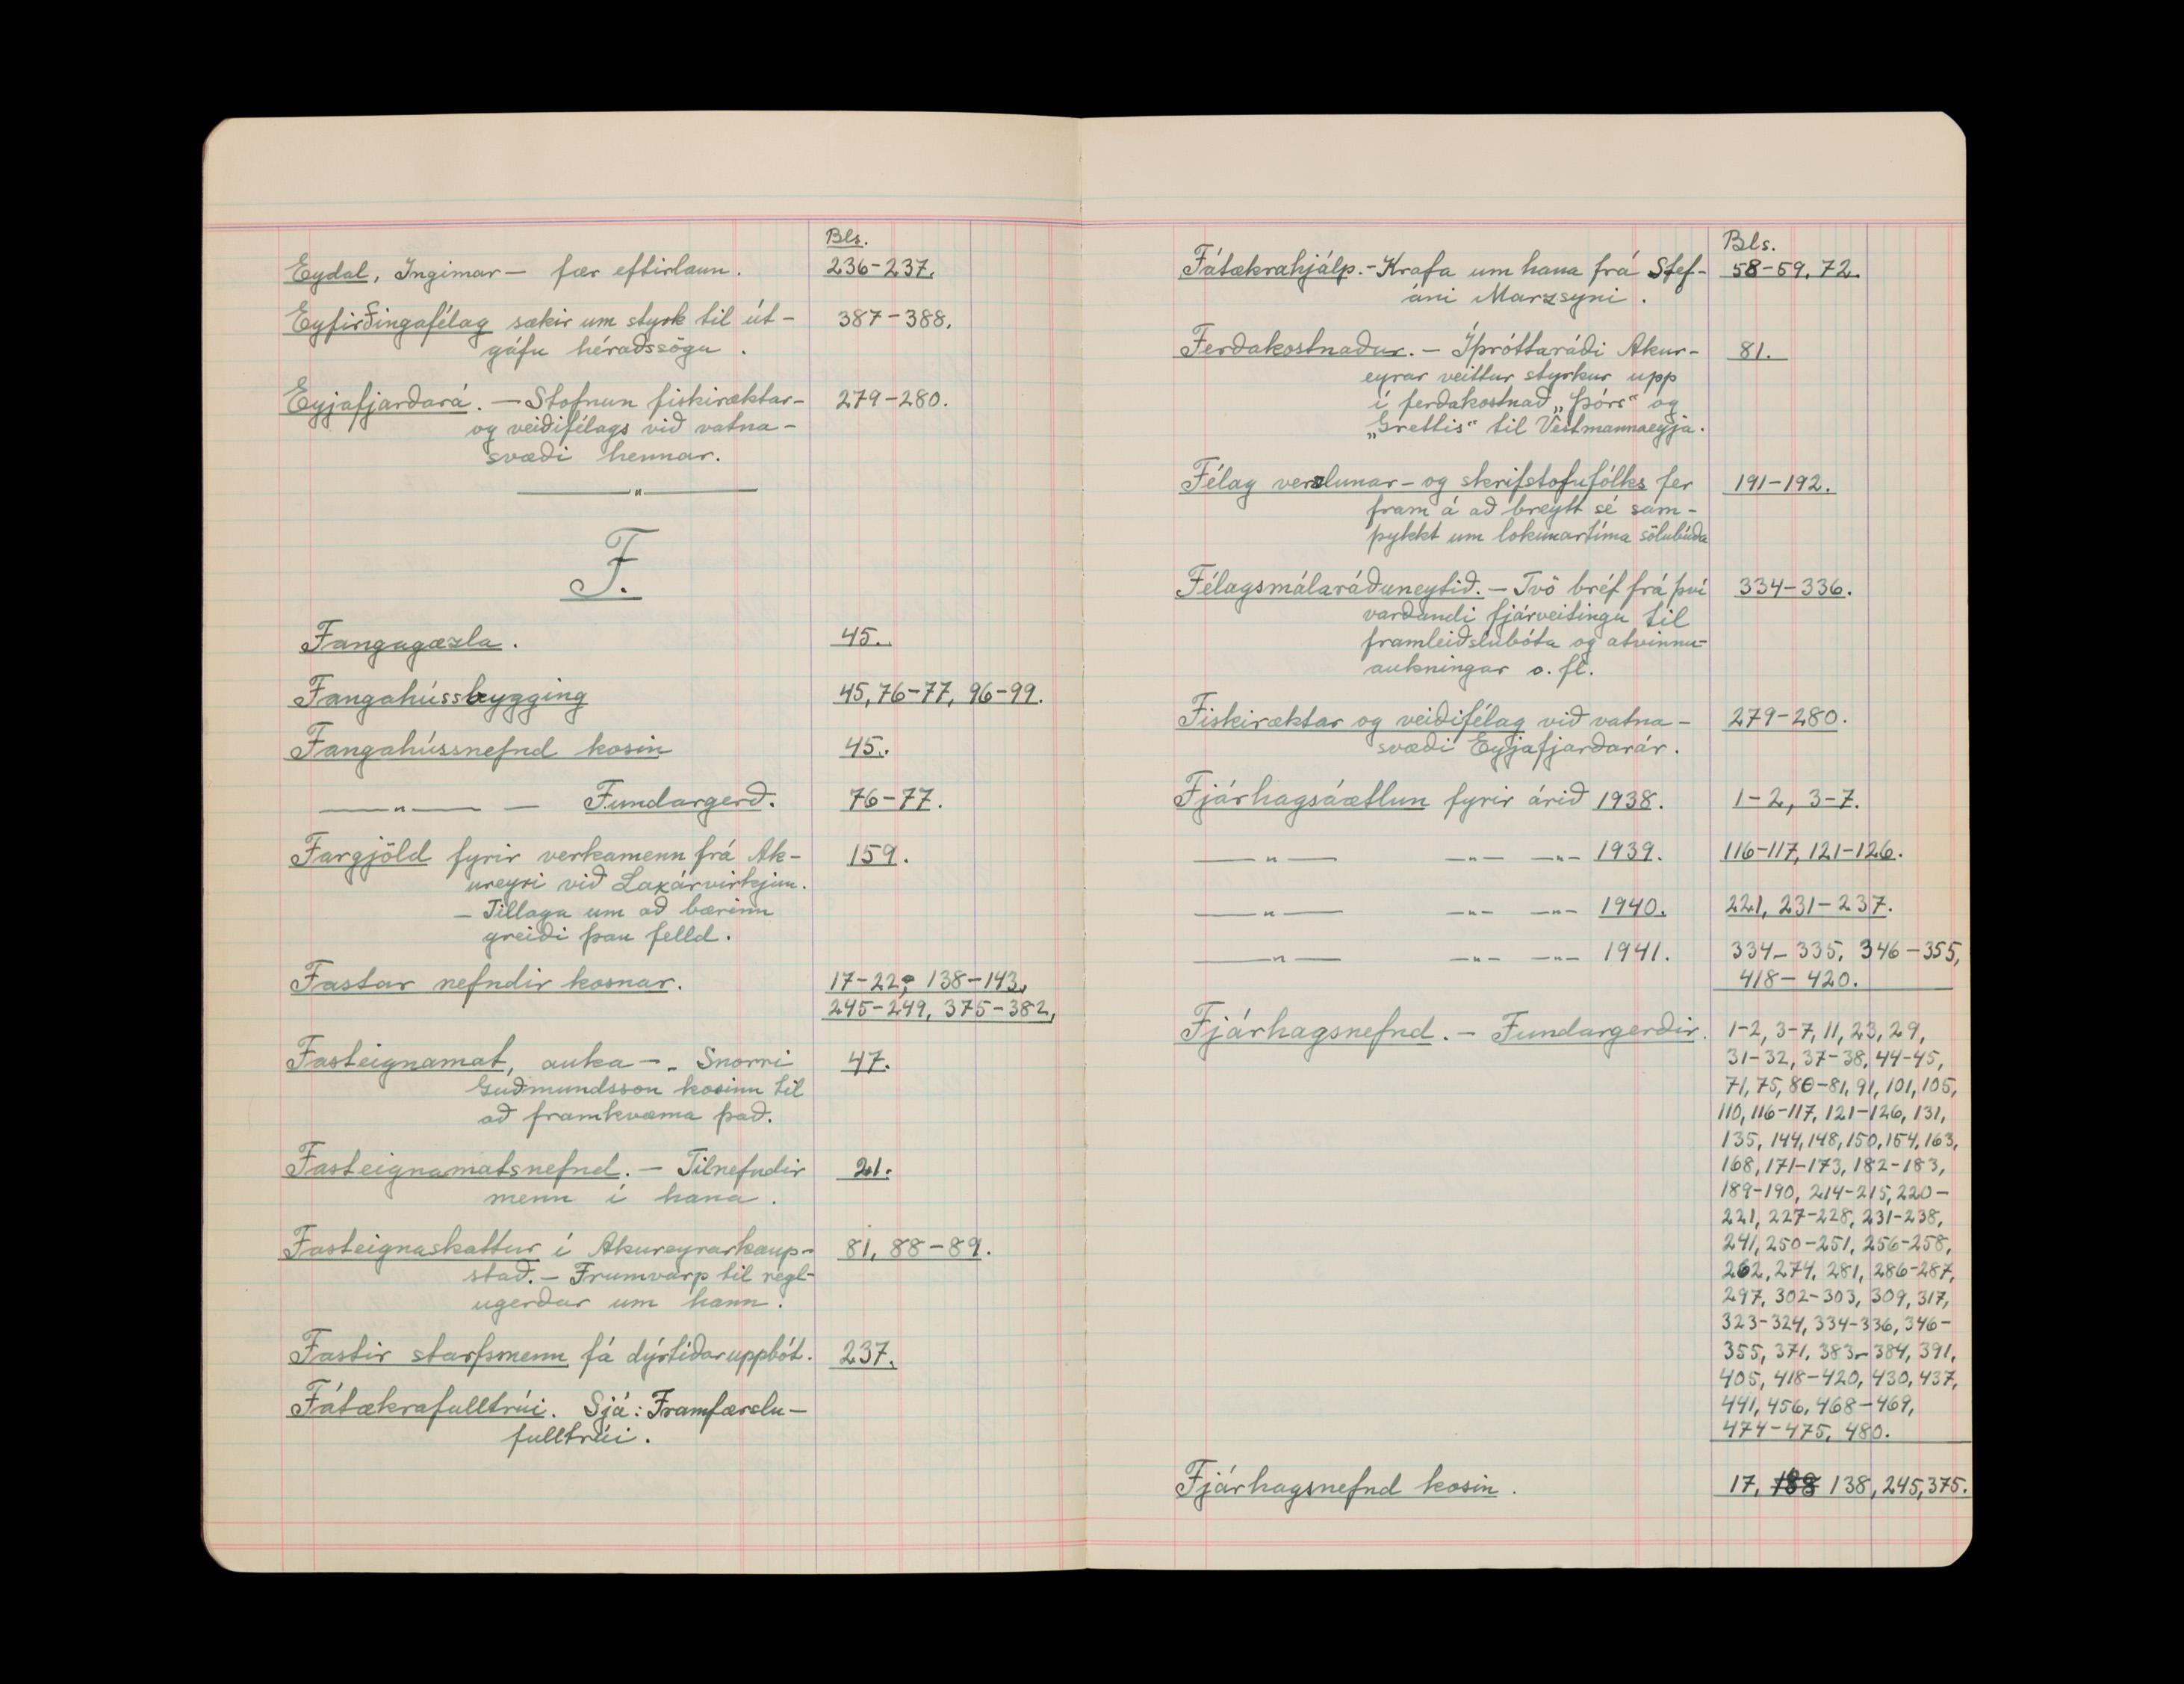 Bls.
Eydal, Ingimar — fær eftirlaun. 236-237.
Eyfirðingafélag sækir um styrk til út- 387-388.
gáfu héraðssögu.
Eyjafjarðará. — Stofnun fiskiræktar- 279-280.
og veiðifélags við vatna-
svæði hennar.
—〃—
F.
Fangagæzla. 45.
Fangahússbygging 45, 76-77, 96-99.
Fangahússnefnd kosin 45.
—〃— — Fundargerð. 76-77.
Fargjöld fyrir verkamenn frá Ak- 159.
ureyri við Laxárvirkjun.
— Tillaga um að bærinn
greiði þau felld.
Fastar nefndir kosnar. 17-22, 138-143,
245-249, 375-382,
Fasteignamat, auka —. Snorri 47.
Guðmundsson kosinn til
að framkvæma það.
Fasteignamatsnefnd. — Tilnefndir 21.
menn í hana.
Fasteignaskattur í Akureyrarkaup- 81, 88-89.
stað. — Frumvarp til regl-
ugerðar um hann.
Fastir starfsmenn fá dýrtíðaruppbót. 237.
Fátækrafulltrúi. Sjá: Framfærslu-
fulltrúi.
Bls.
Fátækrahjálp. - Krafa um hana frá Stef- 58-59, 72.
áni Marzsyni.
Ferðakostnaður. — Íþróttaráði Akur- 81.
eyrar veittur styrkur upp
í ferðakostnað „Þórs“ og
„Grettis“ til Vestmannaeyja.
Félag verzlunar- og skrifstofufólks fer 191-192.
fram á að breytt sé sam-
þykkt um lokunartíma sölubúða
Félagsmálaráðuneytið. — Tvö bréf frá því 334-336.
varðandi fjárveitingu til
framleiðslubóta og atvinnu-
aukningar o. fl.
Fiskiræktar og veiðifélag við vatna- 279-280.
svæði Eyjafjarðarár.
Fjárhagsáætlun fyrir árið 1938. 1-2, 3-7.
—〃— —〃— —〃— 1939. 116-117, 121-126.
—〃— —〃— —〃— 1940. 221, 231-237.
—〃— —〃— —〃— 1941. 334-335, 346-355,
418-420.
Fjárhagsnefnd. — Fundargerðir. 1-2, 3-7, 11, 23, 29,
31-32, 37-38, 44-45,
71, 75, 80-81, 91, 101, 105,
110, 116-117, 121-126, 131,
135, 144, 148, 150, 154, 163,
168, 171-173, 182-183,
189-190, 214-215, 220-
221, 227-228, 231-238,
241, 250-251, 256-258,
262, 274, 281, 286-287,
297, 302-303, 309, 317,
323-324, 334-336, 346-
355, 371, 383-384, 391,
405, 418-420, 430, 437,
441, 456, 468-469,
474-475, 480.
Fjárhagsnefnd kosin. 17, 138, 245, 375.